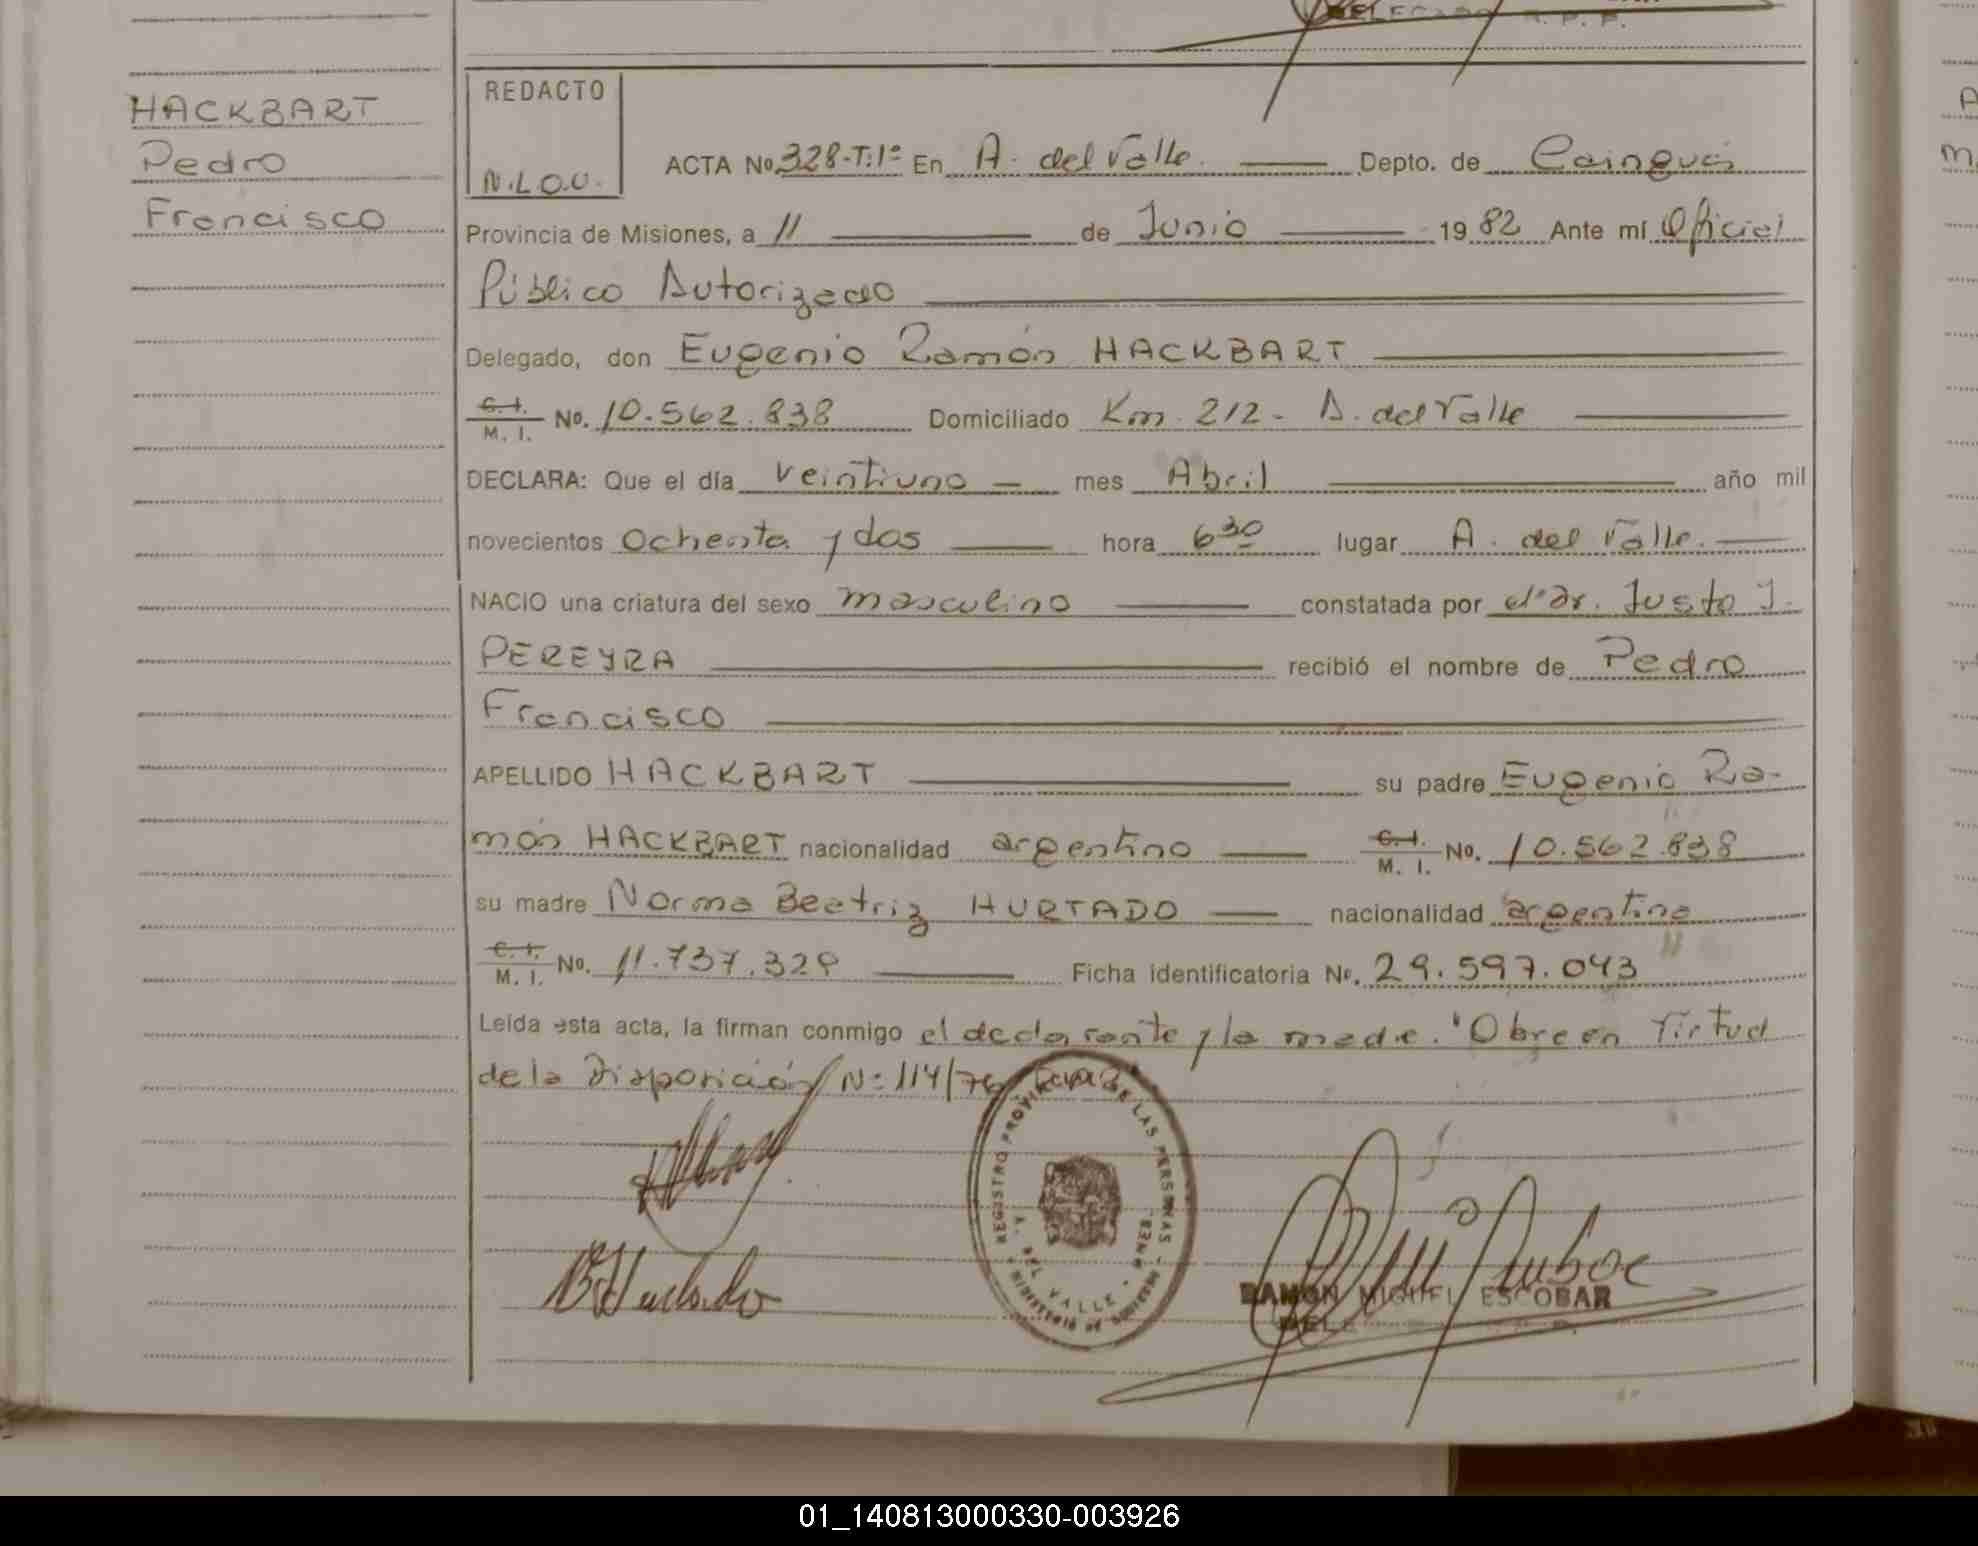 DELEGADO R. P. P.
HACKBART
Pedro
Francisco
REDACTO
N.L.O.U.
ACTA No. 328-T:1º En A. del Valle. Depto. de Cainguás
Provincia de Misiones, a 11 de Junio 1982 Ante mí Oficial
Público Autorizado
Delegado, don Eugenio Ramón HACKBART
C. I. M. I. No. 10.562.838 Domiciliado Km. 212- A. del Valle
DECLARA: Que el día veintiuno mes Abril año mil
novecientos ochenta y dos hora 6 30 lugar A. del Valle.
NACIO una criatura del sexo masculino constatada por el dr. Justo J.
PEREYRA recibió el nombre de Pedro
Francisco
APELLIDO HACKBART su padre Eugenio Ra-
món HACKBART nacionalidad argentino C. I. M. I. No. 10.562.838
su madre Norma Beatriz HURTADO nacionalidad argentina
C. I. M. I. No. 11.737.329 Ficha identificatoria No. 29.597.043
Leída esta acta, la firman conmigo el declarante y la madre. "Obre en Virtud
de la Disposición Nº 114/76
REGISTRO PROVINCIAL DE LAS PERSONAS
A. DEL VALLE
MINISTERIO DE GOBIERNO
RAMON MIGUEL ESCOBAR
01_140813000330-003926